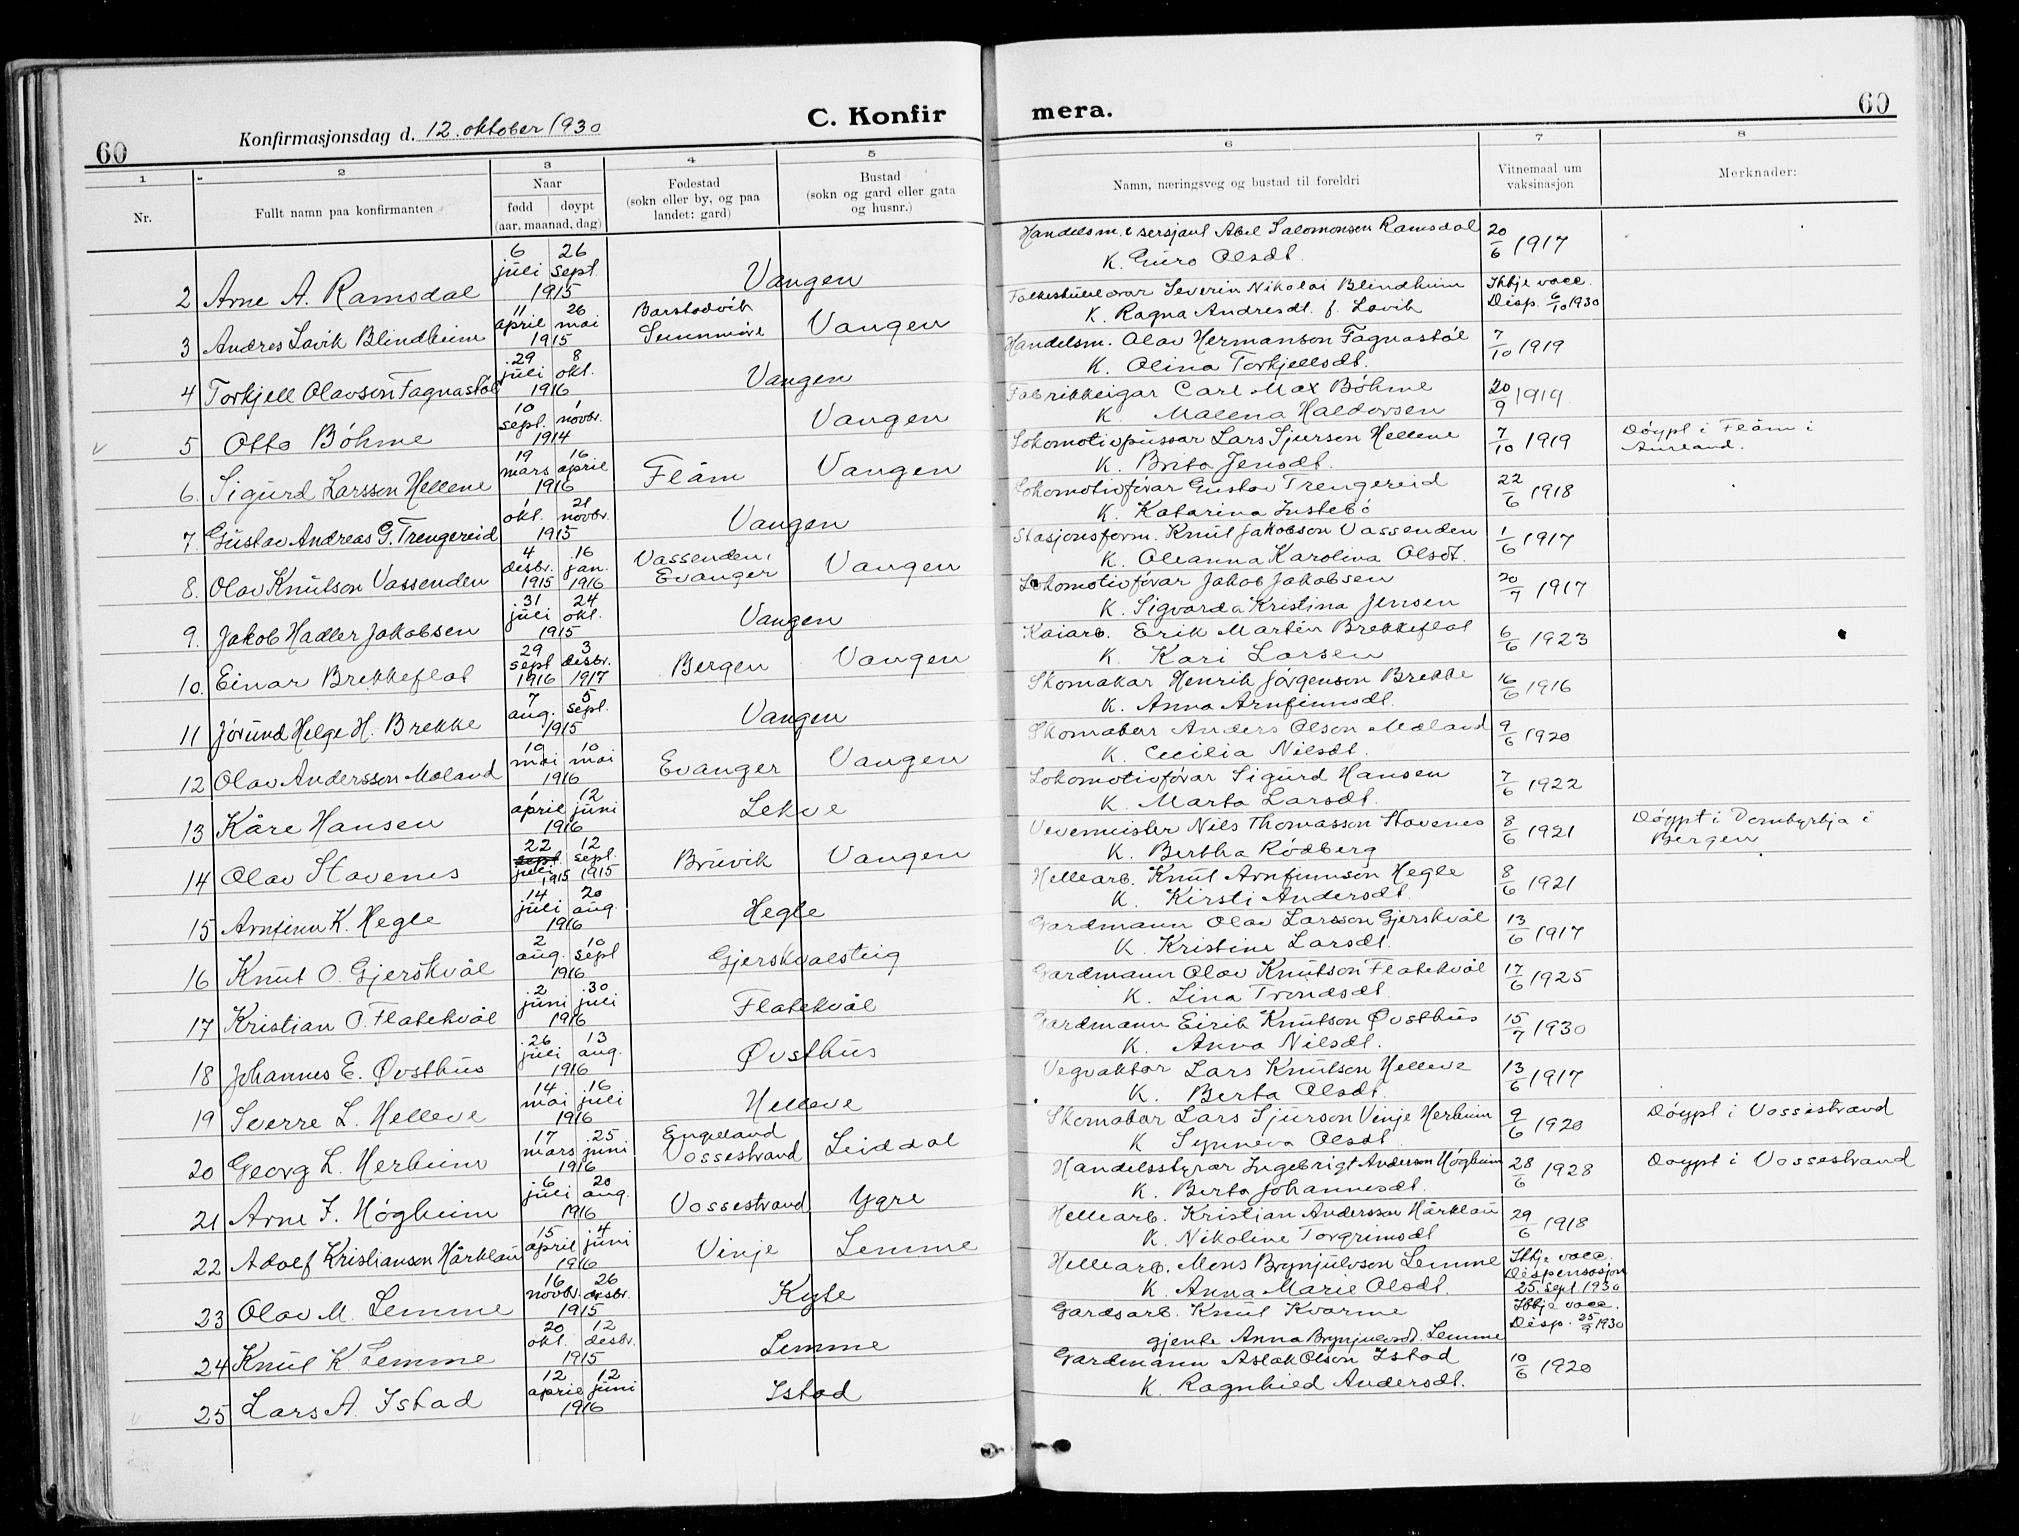 60
Konfirmasjonsdag d. 12. oktober 1930
C. Konfir
mera.
60
1
2
3
4
5
6
7
8
Nr.
Fullt namn paa konfirmanten
Naar
fødd
døypt
(aar, maanad, dag)
Fødestad
(sokn eller by, og paa
landet: gard)
Bustad
(sokn og gard eller gata
og husnr.)
Namn, næringsveg og bustad til foreldri
Vitnemaal um
vaksinasjon
Merknader:
2 Arne A. Ramsdal 6 juli 26 sept. 1915 Vangen
Handelsm. & sersjant Abel Salomonsen Ramsdal
K. Guro Olsdt. 20/6 1917
3 Andres Lavik Blindheim 11 april 26 mai 1915 Barstadvik Sunnmøre Vangen
Severin Nikolai Blindheim
K. Ragna Andresdt. f. Lavik Ikkje vacc. Disp. 6/10 1930
4 Torkjell Olavson Fagnastøl 29 juli 8 okt. 1916 Vangen
Handelsm. Olav Hermanson Fagnastøl
K. Olina Torkjellsdt. 7/10 1919
5 Otto Böhme 10 sept. 1 novbr. 1914 Vangen
Fabrikkeigar Carl Max Böhme
K. Malena Haldorsen 20/9 1919
6. Sigurd Larsson Hellene 19 mars 16 april 1916 Flåm Vangen
Lokomotivpussar Lars Sjurson Hellene
K. Brita Jensdt. 7/10 1919 Døypt i Flåm i
Aurland.
7. Gustav Andreas G. Trengereid 1 okt. 21 novbr. 1915 Vangen
Lokomotivførar Gustav Trengereid
K. Katarina Instebø 22/6 1918
8. Olav Knutson Vassenden 4 desbr. 1915 16 jan. 1916 Vassenden, Evanger Vangen
Stasjonsform. Knut Jakobson Vassenden
K. Oleanna Karolina Olsdt. 1/6 1917
9. Jakob Hadler Jakobsen 31 juli 24 okt. 1915 Vangen
Lokomotivførar Jakob Jakobsen
K. Sigvarda Kristina Jensen 20/7 1917
10. Einar Brekkeflat 29 sept 1916 3 desbr. 1917 Bergen Vangen
Kaiarb. Erik Martin Brekkeflat
K. Kari Larsen 6/6 1923
11 Jørund Helge H. Brekke 7 aug. 5 sept. 1915 Vangen
Skomakar Henrik Jørgenson Brekke
K. Anna Arnfinnsdt. 16/6 1916
12 Olav Andersson Mæland 10 mai 10 mai 1916 Evanger Vangen
Skomakar Anders Olson Mæland
K. Cecilia Nilsdt. 9/6 1920
13 Kåre Hansen 1 april 12 juni 1916 Lekve
Lokomotivførar Sigurd Hansen
K. Marta Larsdt. 7/6 1922
14 Olav Stavenes 22 juli 1915 12 sept. 1915 Bruvik Vangen
Vevemeister Nils Thomasson Stavenes
K. Bertha Rødberg 8/6 1921 Døypt i Domkyrkja i
Bergen
15 Arnfinn K. Hegle 14 juli 20 aug. 1916 Hegle
Hellearb. Knut Arnfinnson Hegle
K. Kirsti Andersdt. 8/6 1921
16 Knut O. Gjerskvål 2 aug. 10 sept 1916 Gjerskvalsteig
Gardmann Olav Larsson Gjerskvål
K. Kristine Larsdt. 13/6 1917
17 Kristian O. Flatekvål 2 juni 30 juli 1916 Flatekvål
Gardmann Olav Knutson Flatekvål
K. Lina Trondsdt. 17/6 1925
18 Johannes E. Øvsthus 26 juli 13 aug. 1916 Øvsthus
Gardmann Eirik Knutson Øvsthus
K. Anna Nilsdt. 15/7 1930
19 Sverre L. Helleve 14 mai 16 juli 1916 Helleve
Vegvaktar Lars Knutson Helleve
K. Berta Olsdt. 13/6 1917
20 Georg L. Herheim 17 mars 25 juni 1916 Engeland Vossestrand Leiddal
Skomakar Lars Sjurson Vinje Herheim
K Synneva Olsdt. 9/6 1920 Døypt i Vossestrand
21 Arne I. Høgheim 6 juli 20 aug. 1916 Vossestrand Ygre
Handelsstyrar Ingebrigt Anderson Høgheim
K. Berta Johannesdt. 28/6 1928 Døypt i Vossestrand
22 Adolf Kristianson Hårklau 15 april 4 juni 1916 Vinje Lemme
Hellearb. Kristian Andersson Hårklau
K. Nikoline Torgrimsdt 29/6 1918
23 Olav M. Lemme 16 novbr. 26 desbr. 1915 Kyte
Hellearb. Mons Brynjulvson Lemme
K. Anna Marie Olsdt. Ikkje vacc. Dispensasjon 25. sept 1930
24 Knut K Lemme 20 okt. 12 desbr. 1915 Lemme
Gardsarb. Knut Kvarme
gjente Anna Brynjulvsdt. Lemme Ikkje vacc. Disp. 25/9 1930
25 Lars A. Istad 12 april 12 juni 1916 Istad
Gardmann Aslak Olson Istad
K. Ragnhild Andersdt. 10/6 1920